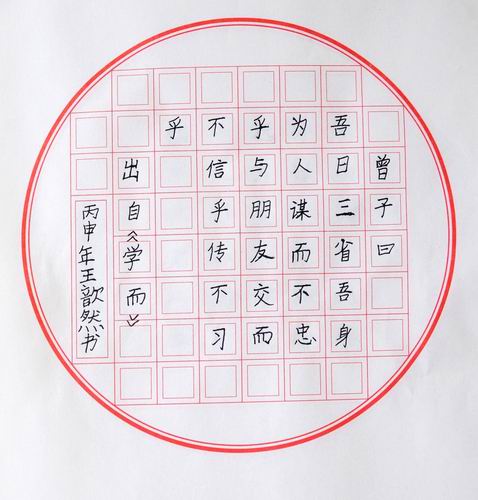 曾子曰
吾日三省吾身
为人谋而不忠
乎与朋友交而
不信乎传不习
乎
出自《学而》
丙申年王歆然书